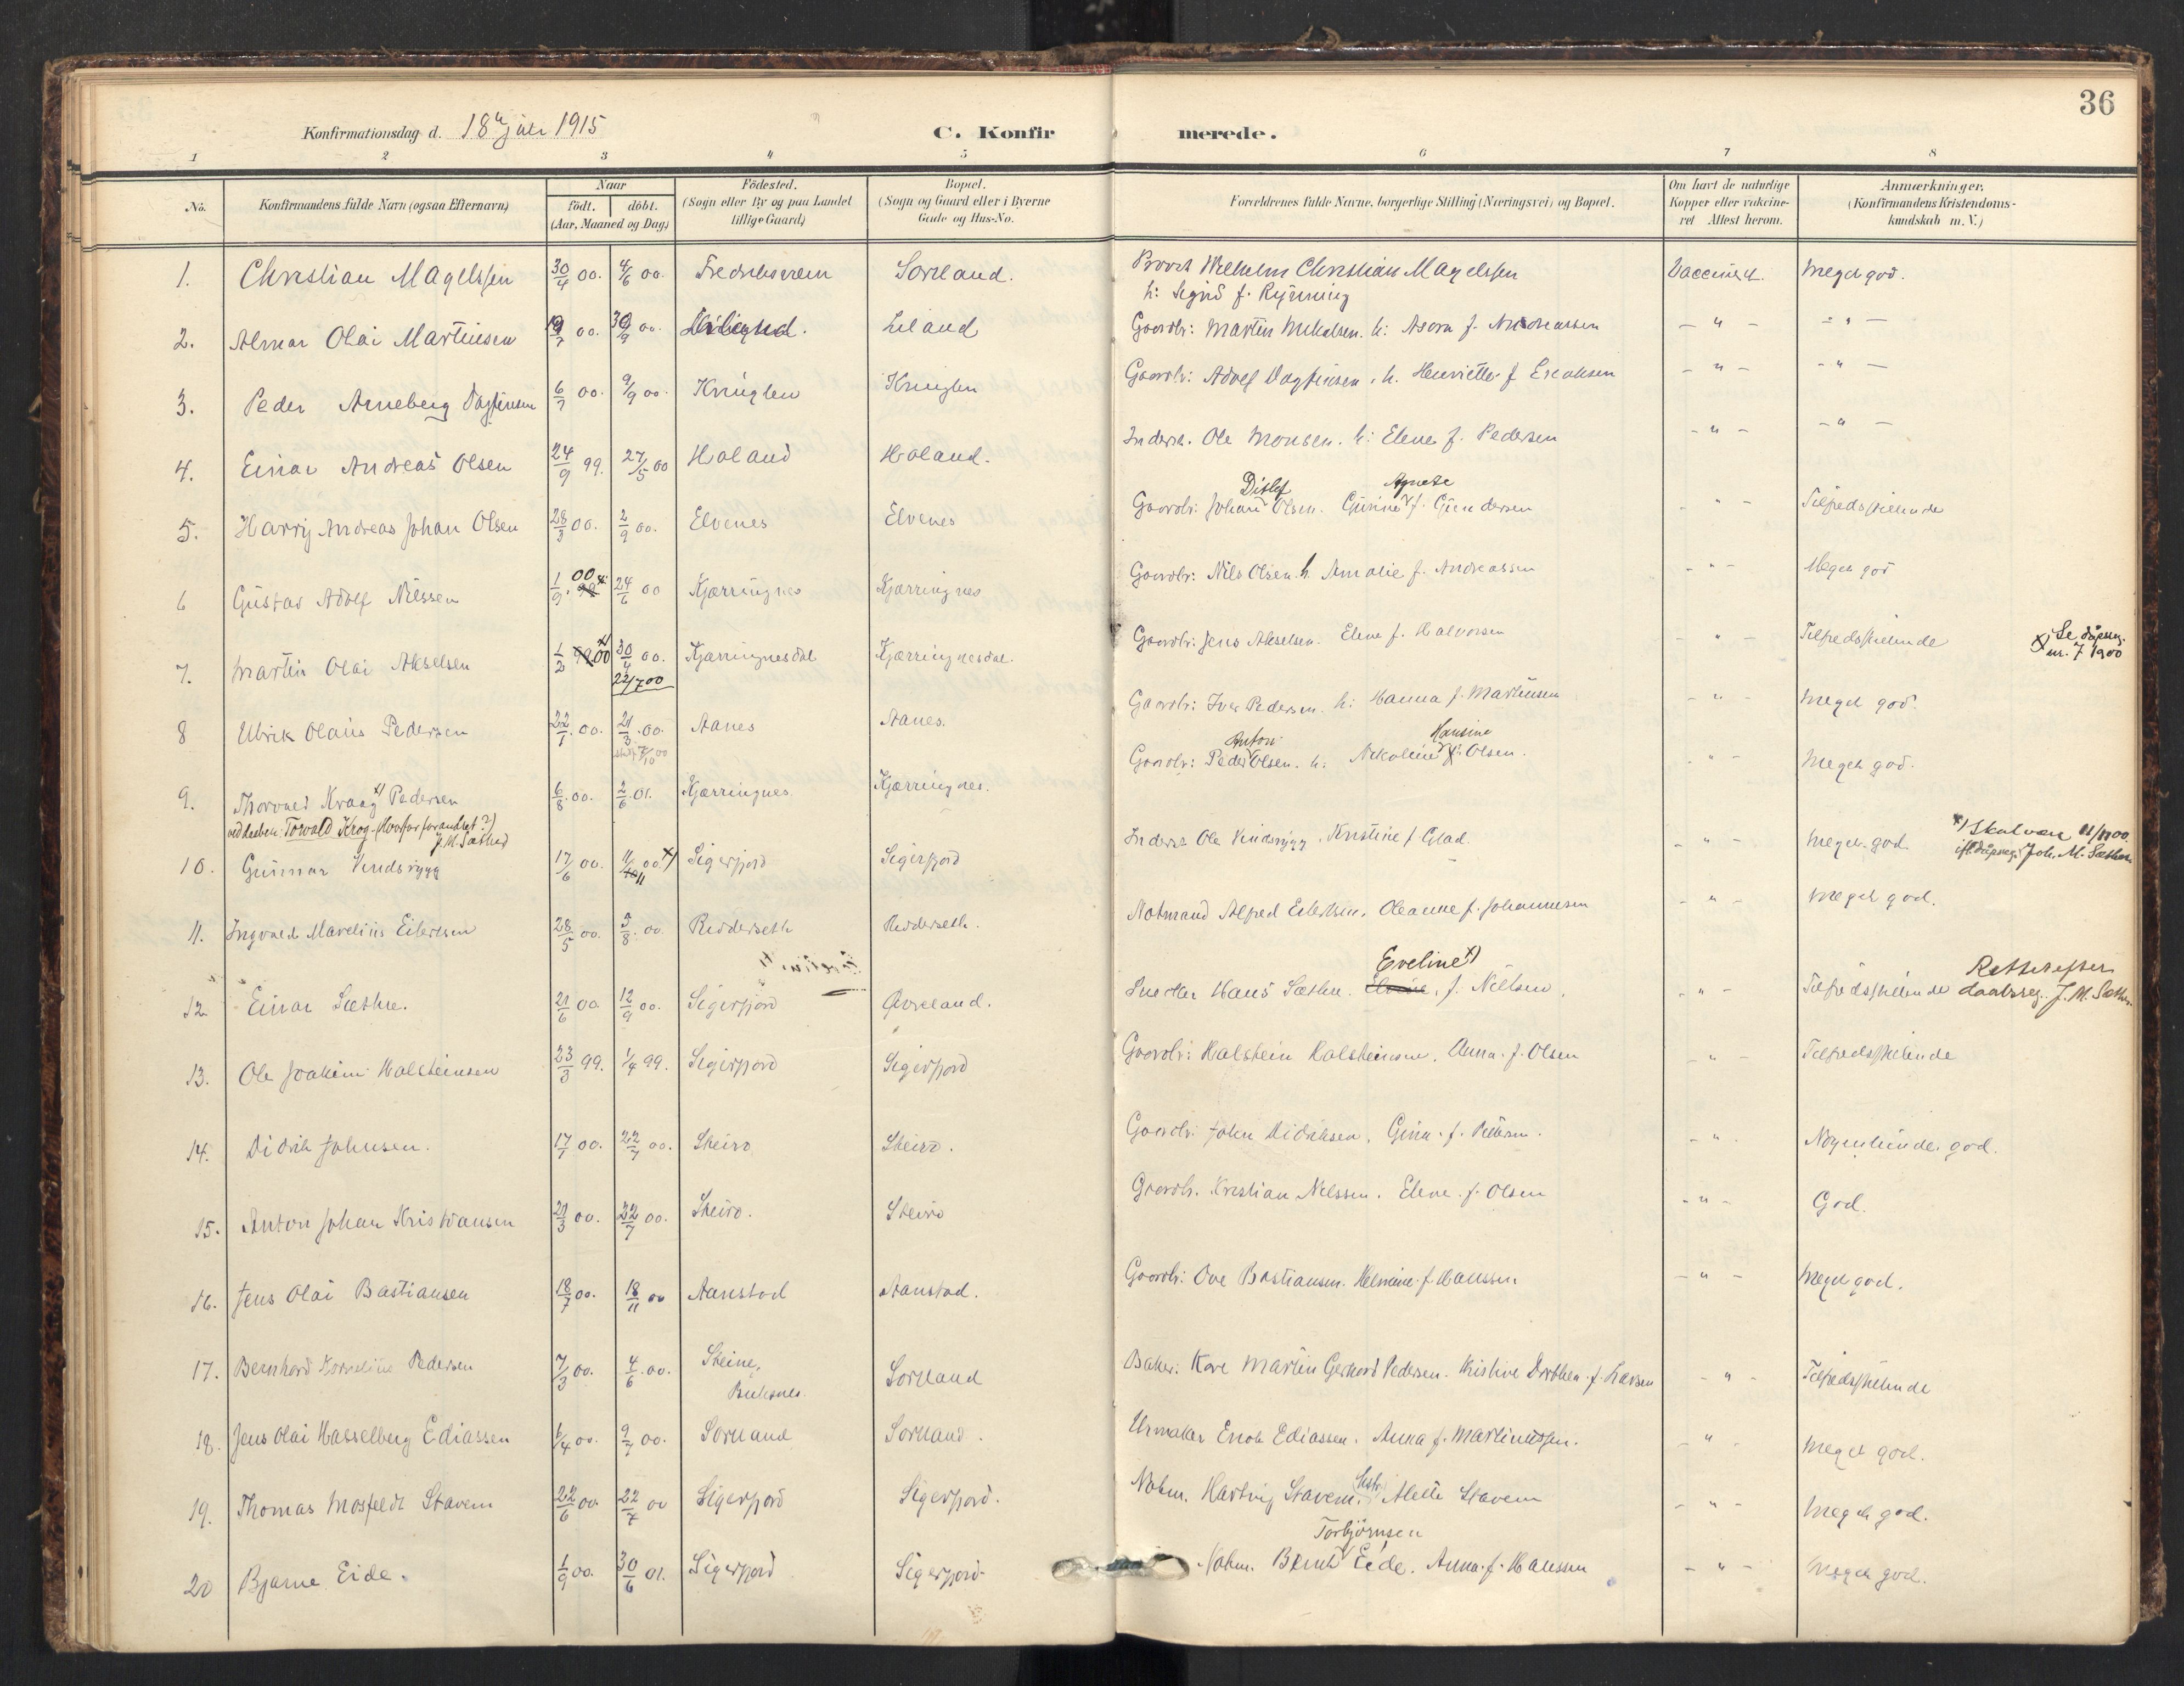 36
Konfirmationsdag d. 18de juli 1915
C. Konfirmerede.
1 2 3 4 5 6 7 8
No.
Konfirmandens fulde Navn (ogsaa Efternavn)
Naar
födt. döbt.
(Aar, Maaned og Dag)
Födested.
(Sogn eller By og paa Landet
tillige Gaard)
Bopæl.
(Sogn og Gaard eller i Byerne
Gade og Hus-No.
Forældrenes fulde Navne, borgerlige Stilling (Næringsvei) og Bopæl.
Om havt de naturlige
Kopper eller vakcine-
ret Attest herom.
Anmærkninger.
(Konfirmandens Kristendoms-
kundskab m. V.)
1. Christian Magelssen 30/4 00. 4/6 00. Fredriksvern Sortland. Provst Wilhelm Christian Magelssen Vaccinert. Meget god.
h: Sigrid f. Rynning
2. Almar Olai Martinsen 19/7 00. 30/9 00. Liland Gaardbr: Martin Mikalsen. h: Asora f. Andreassen - " - - " -
3. Peder Arneberg Dagfinsen 6/7 00. 9/9 00. Kringlen Kringlen Gaardbr: Adolf Dagfinsen. h. Henriette f. Ereaksen - " - - " -
4. Einar Andreas Olsen 24/9 99. 27/5 00 Holand Holand. Inderst. Ole Monsen. h: Elene f. Pedersen - " - - " -
5. Harry Andreas Johan Olsen 28/3 00. 2/9 00. Elvenes Elvenes Gaardbr: Johan Ditlef Olsen. Gurine Agnete f. Gundersen " - Tilfredsstillende
6 Gustav Adolf Nilssen 1/9. 99 00 24/6 00 Kjærringnes Kjærringnes Gaardbr: Nils Olsen h. Amalie f. Andreassen - " - Meget god
7. Martin Olai Akselsen 1/2 99 00 x) 30/4 00. Kjærringnesdal Kjærringnesdal. Gaardbr: Jens Akselsen. Elene f. Halvorsen - " - Tilfredsstillende x) Se dåpsreg.
22/7 00 nr. 7 1900
8 Ulrik Olaus Pedersen 22/1. 00. 21/3. 00. Aanes Aanes. Gaardbr: Iver Pedersen. h: Hanna f. Martinsen - " - Meget god.
9. Thorvald Kraag x) Pedersen 6/8. 00. 2/6. 01. Kjærringnes. Kjærringnes. Gaardbr: Peder Anton Olsen. h: Nikoline Hansine f. Olsen. " - Meget god.
ved daaben: Torvald Krog. (Hvorfor forandret?)
J. M. Sæther
10. Gunnar Vindsrygg 17/6 00. 11/11 00 x) Sigerfjord Sigerfjord Inderst Ole Vindsrygg. Kristine f. Glad. - " - Meget god. x) Skal være 11/11 00
ifl. dåpsreg. Joh. M. Sæther
11. Ingvald Marelius Eilertsen 28/5 00. 5/8. 00. Ridderseth Ridderseth. Notmand Alfred Eilertsen. Oleanne f. Johannesen " - Meget god.
12. Einar Sæthre. 21/6 00. 12/9 00. Sigerfjord Øvreland. Snedker Hans Sæthre. Eveline x) f. Nielsen. - " - Tilfredsstillende Rettet efter
daabsreg. J. M. Sæther.
13. Ole Joakim Halsteinsen 23/3 99. 1/4 99. Sigerfjord Sigerfjord Gaardbr: Halstein Halsteinsen, Anna f. Olsen - " - Tilfredsstillende
14. Didrik Johnsen. 17/1 00. 22/7 00. Steiro Steiro. Gaardbr: John Didriksen, Gina f. - " - Nogenlunde god.
15. Anton Johan Kristiansen 21/3 00. 22/7 00. Steiro. Steiro Gaardbr. Kristian Nilssen. Elene f. Olsen - " - God.
16. Jens Olai Bastiansen 18/7 00. 18/11 00 Aanstad Aanstad. Gaardbr: Ove Bastiansen. Helmine f. Hanssen - " - Meget god.
17. Bernhard Kornelius Pedersen 7/3 00. 4/6. 00. Steine, Buksnes Sortland Baker. Kare Martin Gerhard Pedersen. Kristine Dorthea f. Larsen - " - Tilfredsstillende
18. Jens Olai Hasselberg Ediassen 6/4 00. 9/7 00. Sortland Sortland. Urmaker Enok Ediassen. Anna f. Martinussen. - " - Meget god.
19. Thomas Mosfeldt Stavem 22/6 00. 22/7 00 Sigerfjord Sigerfjord. Notm. Hartvig Stavem. Alette Stavem - " - Meget god.
20 Bjarne Eide. 1/9 00. 30/6 01. Sigerfjord Sigerfjord. Notm. Bernt Torbjørnsen Eide. Anna f. Hanssen - " - Meget god.